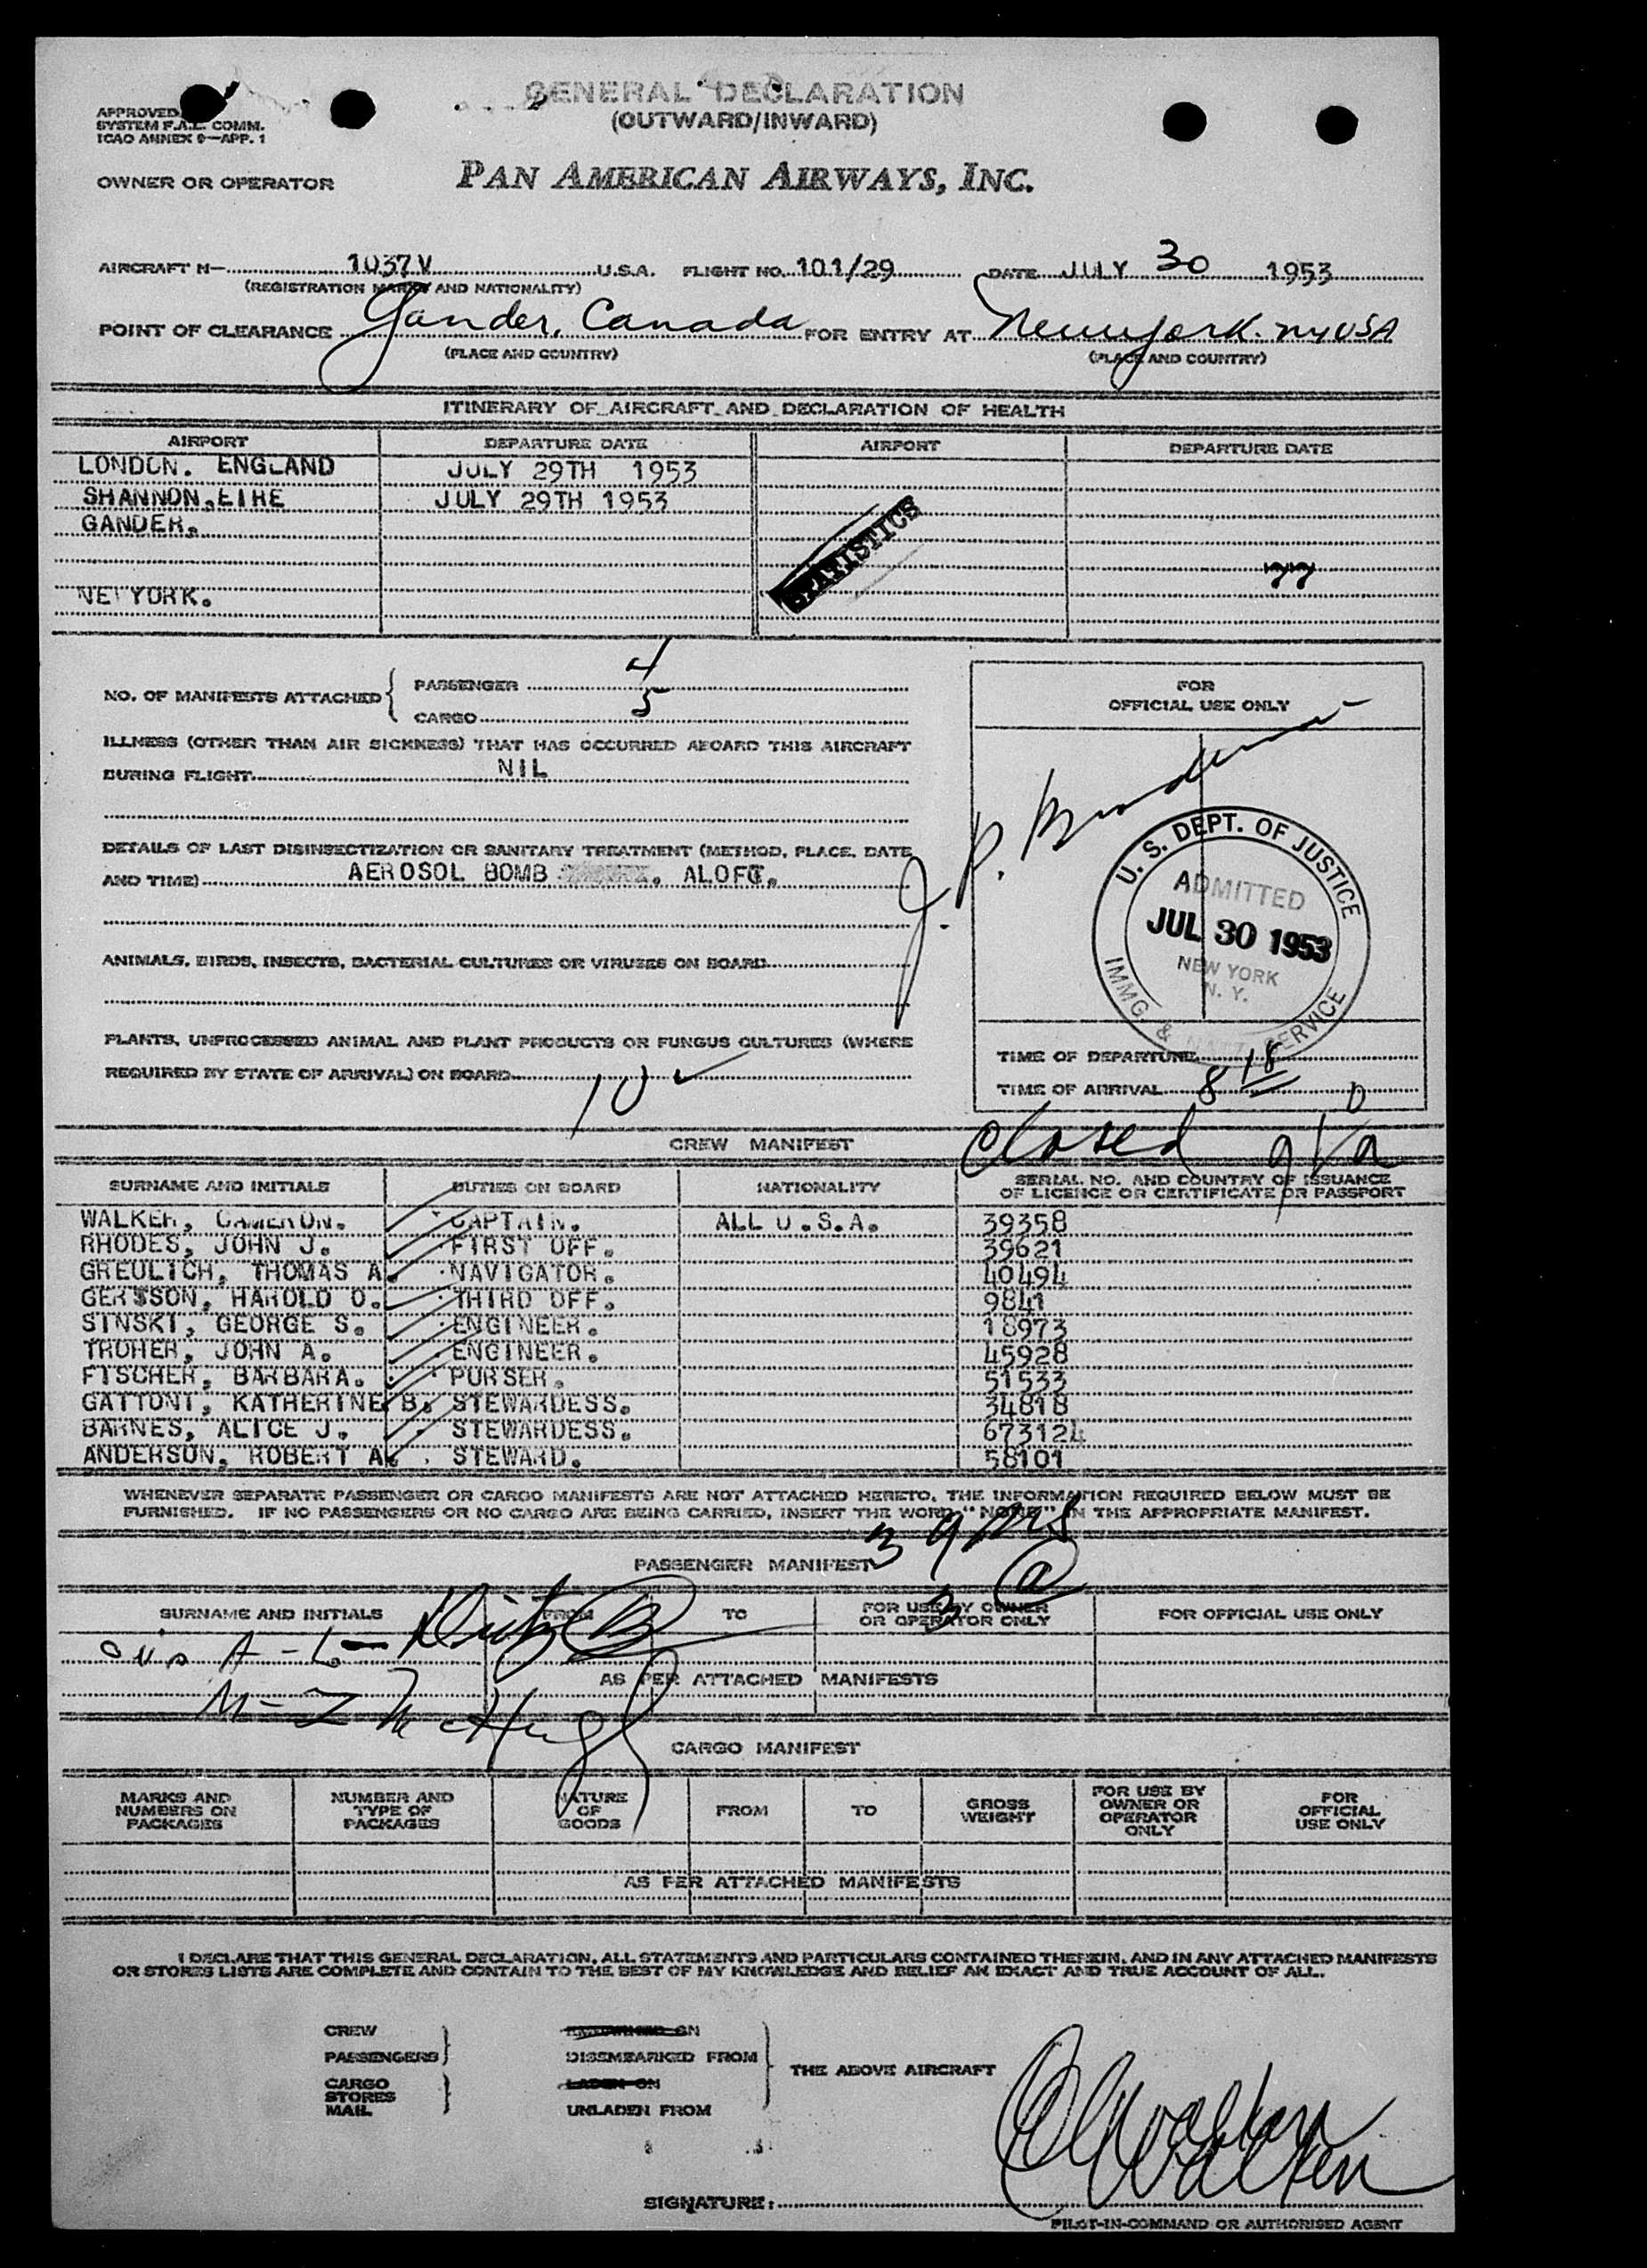 GENERAL DECLARATION
(OUTWARD/INWARD)
APPROVED
SYSTEM F.A.L. COMM.
ICAO ANNEX 9—APP. 1
OWNER OR OPERATOR PAN AMERICAN AIRWAYS, INC.
AIRCRAFT N— 1037V U.S.A. FLIGHT NO. 101/29 DATE JULY 30 1953
(REGISTRATION MARKS AND NATIONALITY)
POINT OF CLEARANCE Gander, Canada FOR ENTRY AT New York. NY USA
(PLACE AND COUNTRY) (PLACE AND COUNTRY)
ITINERARY OF AIRCRAFT AND DECLARATION OF HEALTH
AIRPORT DEPARTURE DATE AIRPORT DEPARTURE DATE
LONDON. ENGLAND JULY 29TH 1953
SHANNON,EIRE JULY 29TH 1953
GANDER.
STATISTICS
NEWYORK.
NO. OF MANIFESTS ATTACHED { PASSENGER 4
CARGO 5
FOR
OFFICIAL USE ONLY
ILLNESS (OTHER THAN AIR SICKNESS) THAT HAS OCCURRED ABOARD THIS AIRCRAFT
DURING FLIGHT NIL
DETAILS OF LAST DISINSECTIZATION OR SANITARY TREATMENT (METHOD, PLACE, DATE
AND TIME) AEROSOL BOMB . ALOFT.
ANIMALS, BIRDS, INSECTS, BACTERIAL CULTURES OR VIRUSES ON BOARD
PLANTS, UNPROCESSED ANIMAL AND PLANT PRODUCTS OR FUNGUS CULTURES (WHERE
REQUIRED BY STATE OF ARRIVAL) ON BOARD
10 ✓
J. P.
U. S. DEPT. OF JUSTICE
ADMITTED
JUL 30 1953
NEW YORK
N. Y.
IMMG & NATZ SERVICE
TIME OF DEPARTURE
TIME OF ARRIVAL 8 18
Closed
CREW MANIFEST
SURNAME AND INITIALS DUTIES ON BOARD NATIONALITY SERIAL NO. AND COUNTRY OF ISSUANCE
OF LICENCE OR CERTIFICATE OR PASSPORT
WALKER, CAMERON. CAPTAIN. ALL U.S.A. 39358
RHODES, JOHN J. FIRST OFF. 39621
GREULICH, THOMAS A. NAVIGATOR. 40494
GERTSSON, HAROLD O. THIRD OFF. 9841
SINSKI, GEORGE S. ENGINEER. 18973
TROHER, JOHN A. ENGINEER. 45928
FISCHER, BARBARA. PURSER. 51533
GATTONI, KATHERINE B. STEWARDESS. 34818
BARNES, ALICE J. STEWARDESS. 673124
ANDERSON, ROBERT A. STEWARD. 58101
WHENEVER SEPARATE PASSENGER OR CARGO MANIFESTS ARE NOT ATTACHED HERETO, THE INFORMATION REQUIRED BELOW MUST BE
FURNISHED. IF NO PASSENGERS OR NO CARGO ARE BEING CARRIED, INSERT THE WORD "NONE" IN THE APPROPRIATE MANIFEST.
PASSENGER MANIFEST
SURNAME AND INITIALS FROM TO FOR USE BY OWNER
OR OPERATOR ONLY FOR OFFICIAL USE ONLY
A - L
AS PER ATTACHED MANIFESTS
M - Z McHugh
CARGO MANIFEST
MARKS AND
NUMBERS ON
PACKAGES
NUMBER AND
TYPE OF
PACKAGES
NATURE
OF
GOODS
FROM
TO
GROSS
WEIGHT
FOR USE BY
OWNER OR
OPERATOR
ONLY
FOR
OFFICIAL
USE ONLY
AS PER ATTACHED MANIFESTS
I DECLARE THAT THIS GENERAL DECLARATION, ALL STATEMENTS AND PARTICULARS CONTAINED THEREIN, AND IN ANY ATTACHED MANIFESTS
OR STORES LISTS ARE COMPLETE AND CONTAIN TO THE BEST OF MY KNOWLEDGE AND BELIEF AN EXACT AND TRUE ACCOUNT OF ALL.
CREW ON
PASSENGERS DISEMBARKED FROM THE ABOVE AIRCRAFT
CARGO LADEN ON
STORES
MAIL UNLADEN FROM
C Walker
SIGNATURE:
PILOT-IN-COMMAND OR AUTHORISED AGENT